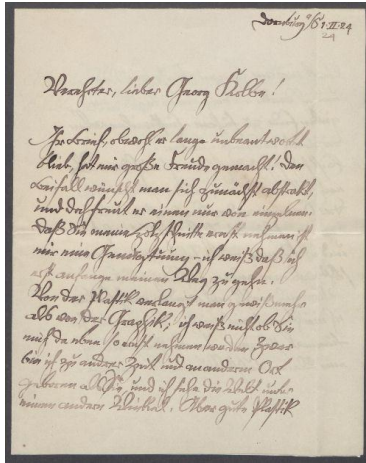 Dornburg a/S 1.II.24
24
Verehrter, lieber Georg Kolbe!
Ihr Brief, obwohl er lange unbeantwortet
blieb, hat mir große Freude gemacht! Den
Beifall wünscht man sich zunächst abstrakt,
und doch freut er einen nur von einzelnen.
Daß Sie meine Holzschnitte ernst nehmen ist
mir eine Genugtuung – ich weiß daß ich
erst anfange meinen Weg zu gehn.
Von der Plastik verlangt man gewiß mehr
als von der Graphik; ich weiß nicht ob Sie
mich da eben so ernst nehmen werden. Zwar
bin ich zu andrer Zeit und an anderem Ort
geboren als Sie, und ich sehe die Welt unter
einem andern Winkel. Aber gute Plastik